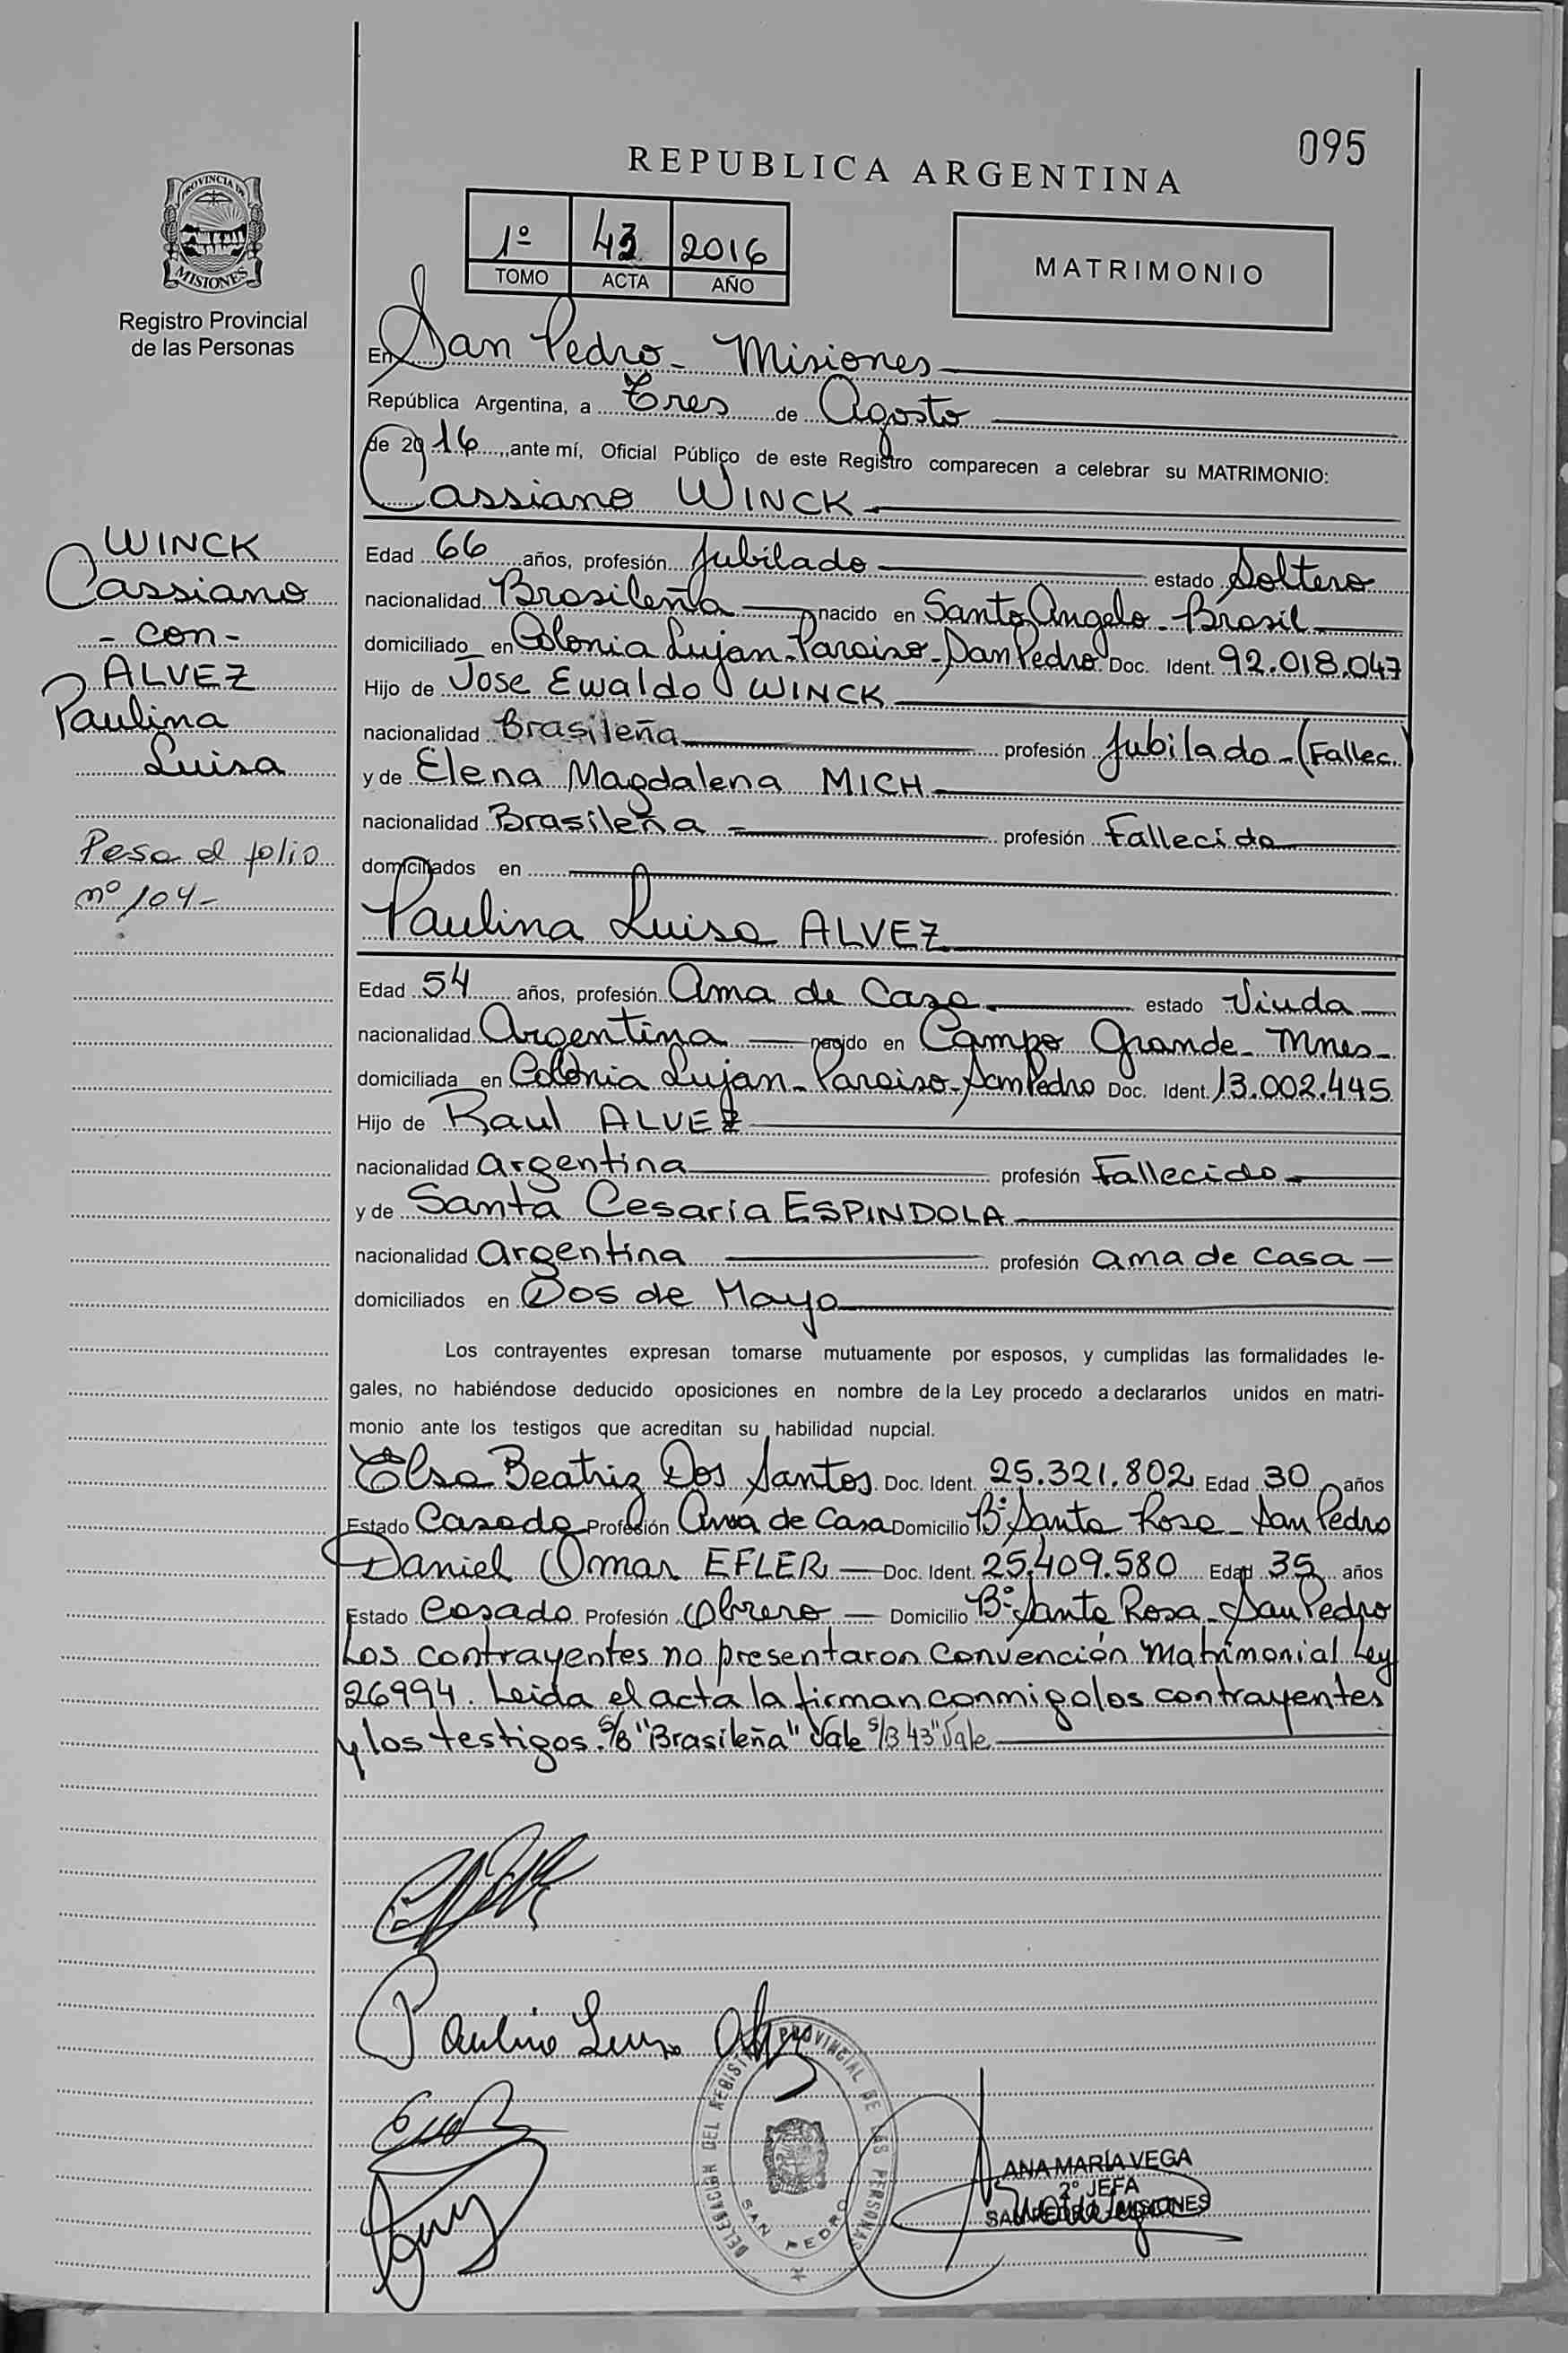 095
REPUBLICA ARGENTINA
PROVINCIA DE
MISIONES
Registro Provincial
de las Personas
1º 43 2016
TOMO ACTA AÑO
MATRIMONIO
En San Pedro - Misiones
República Argentina, a Tres de Agosto
de 2016, ante mí, Oficial Público de este Registro comparecen a celebrar su MATRIMONIO:
Cassiano WINCK
WINCK
Cassiano
- con -
ALVEZ
Paulina
Luisa
Pasa al folio
nº 104-
Edad 66 años, profesión Jubilado estado Soltero
nacionalidad Brasileña nacido en Santo Angelo - Brasil
domiciliado en Colonia Lujan - Paraiso - San Pedro Doc. Ident. 92.018.047
Hijo de Jose Ewaldo WINCK
nacionalidad Brasileña profesión Jubilado - (Fallec.)
y de Elena Magdalena MICH
nacionalidad Brasileña profesión Fallecida
domiciliados en
Paulina Luisa ALVEZ
Edad 54 años, profesión Ama de Casa estado Viuda
nacionalidad Argentina nacido en Campo Grande - Mnes -
domiciliada en Colonia Lujan - Paraiso - San Pedro Doc. Ident. 13.002.445
Hijo de Raul ALVEZ
nacionalidad argentina profesión Fallecido
y de Santa Cesaria ESPINDOLA
nacionalidad argentina profesión ama de casa
domiciliados en Dos de Mayo
Los contrayentes expresan tomarse mutuamente por esposos, y cumplidas las formalidades le-
gales, no habiéndose deducido oposiciones en nombre de la Ley procedo a declararlos unidos en matri-
monio ante los testigos que acreditan su habilidad nupcial.
Elsa Beatriz Dos Santos Doc. Ident. 25.321.802 Edad 30 años
Estado Casada Profesión Ama de Casa Domicilio Bº Santa Rosa - San Pedro
Daniel Omar EFLER Doc. Ident. 25.409.580 Edad 35 años
Estado Casado Profesión Obrero Domicilio Bº Santa Rosa - San Pedro
Los contrayentes no presentaron Convención Matrimonial Ley
26994. Leida el acta la firman conmigo los contrayentes
y los testigos. S/B "Brasileña" Vale S/B 43" Vale
Paulina Luisa
DELEGACION DEL REGISTRO PROVINCIAL DE LAS PERSONAS
SAN PEDRO
ANA MARÍA VEGA
2º JEFA
SAN PEDRO - MISIONES